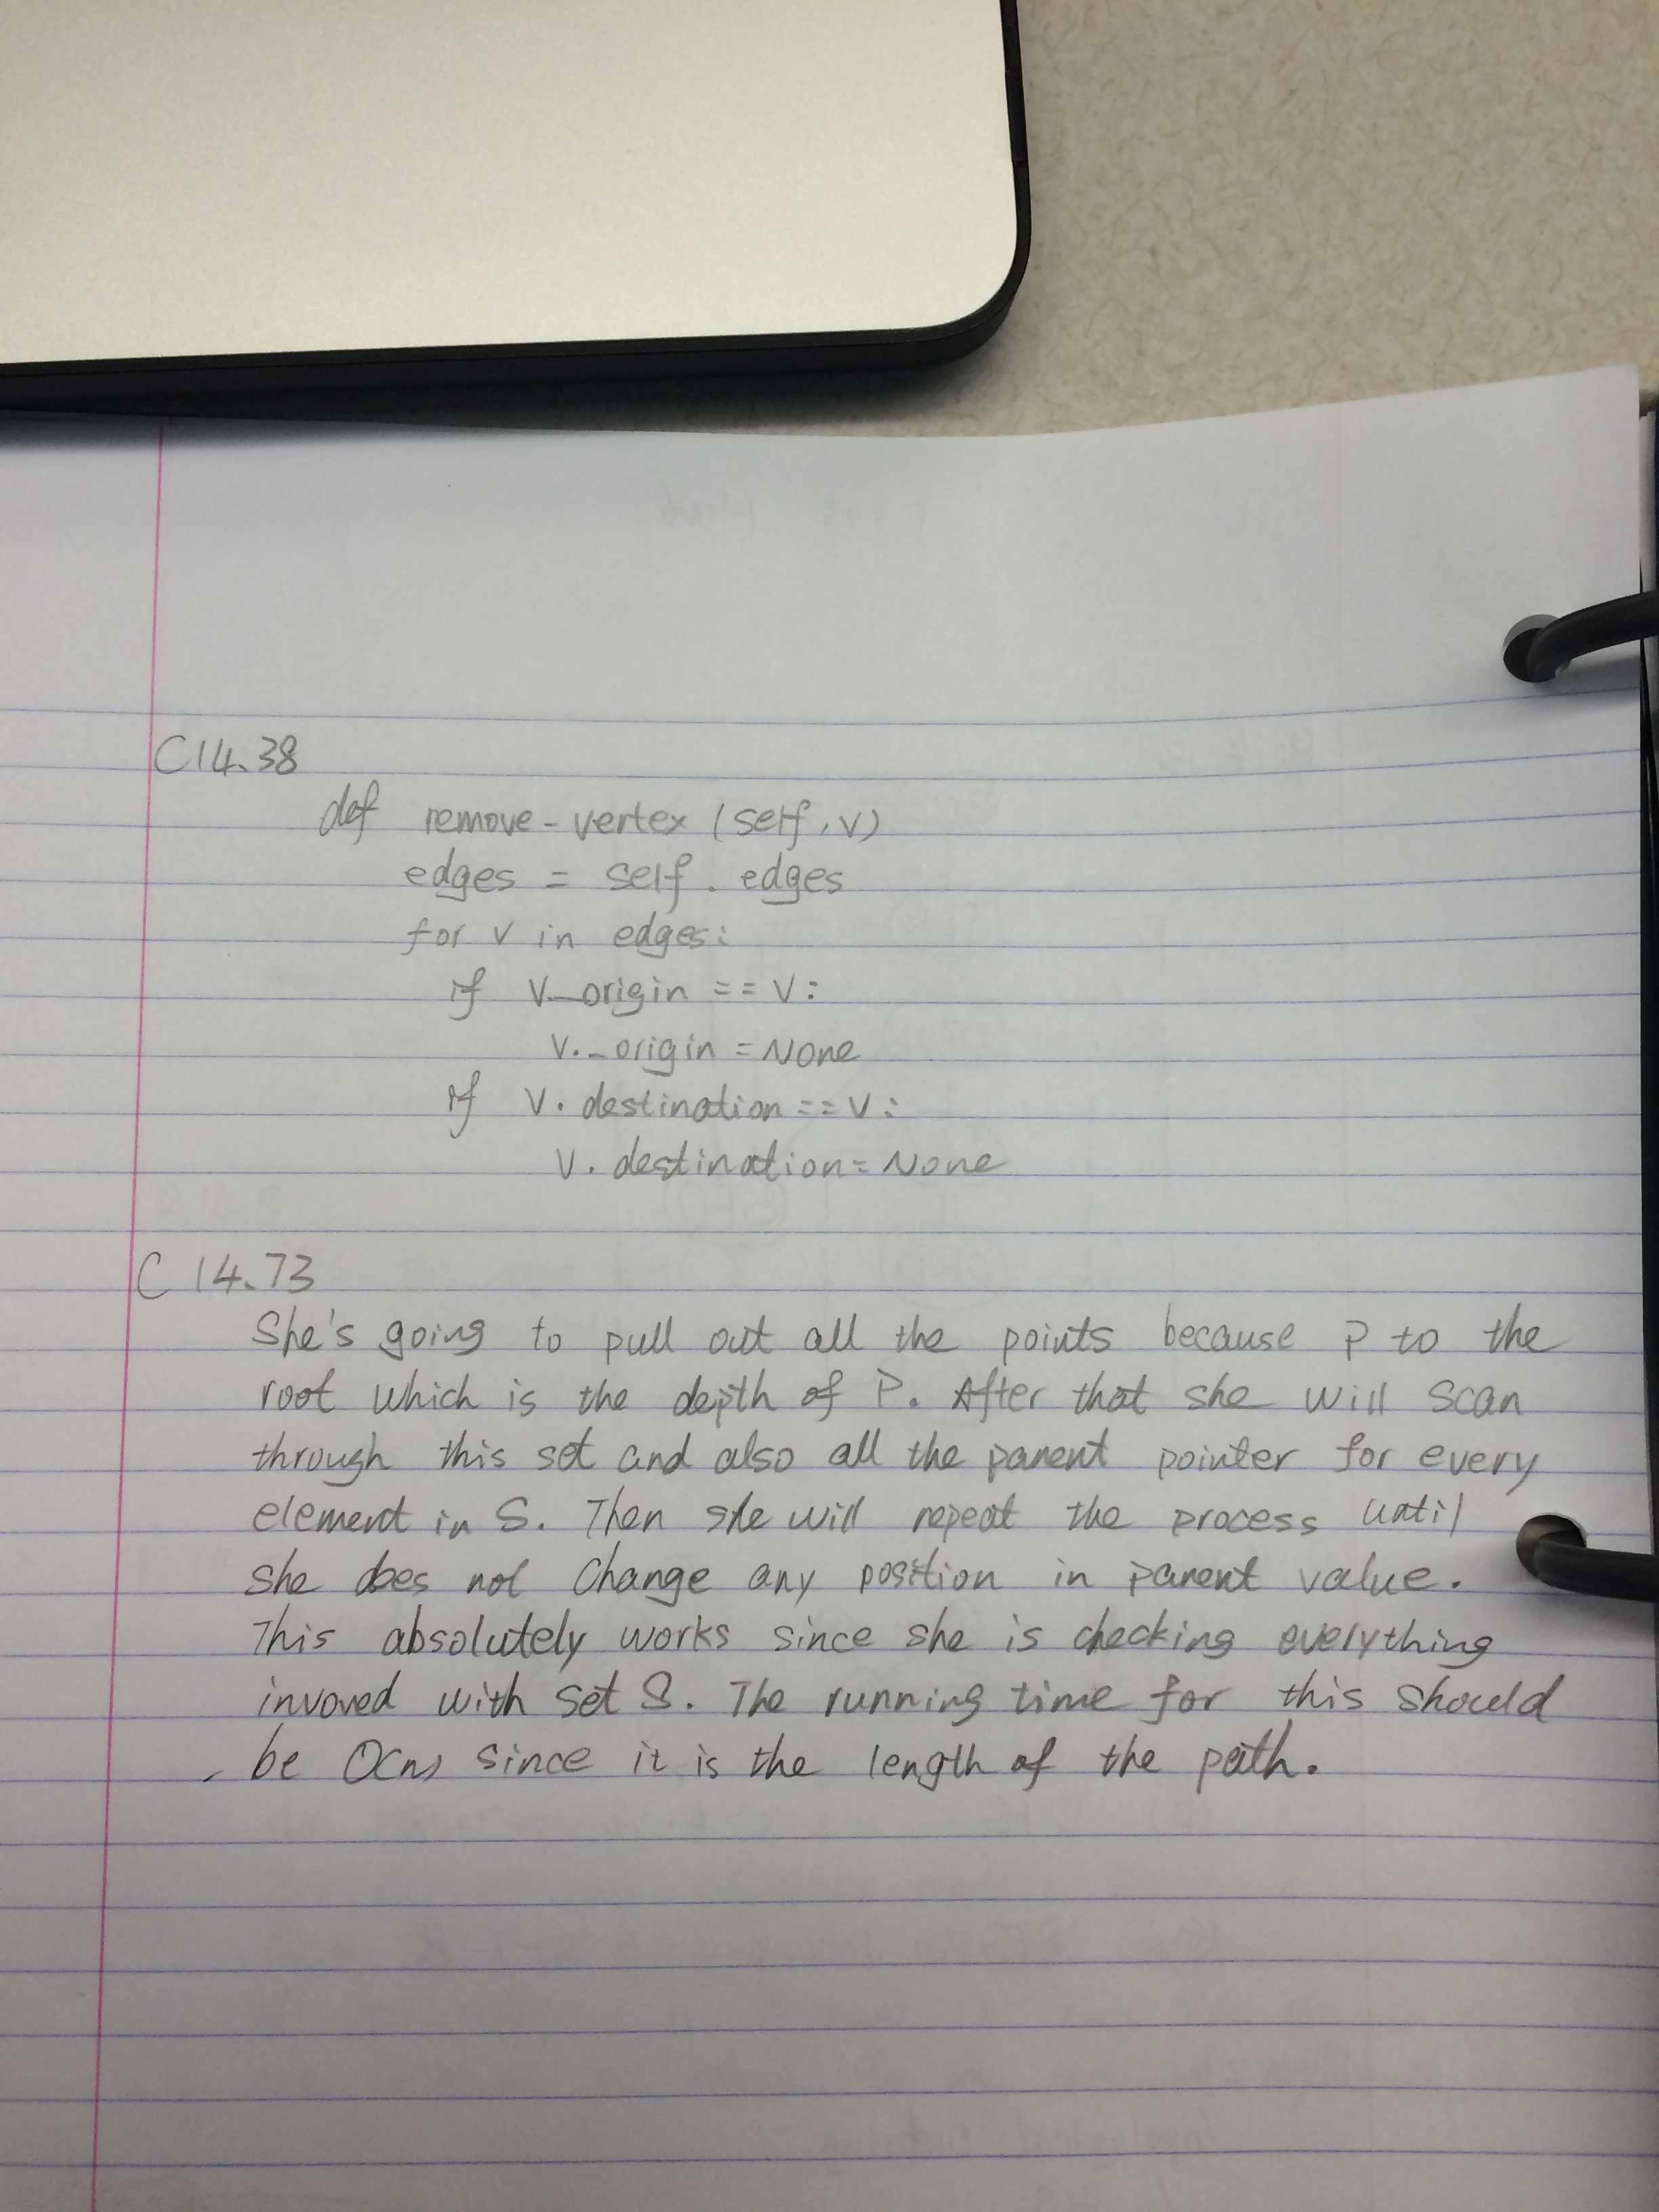 C14.38
def remove-vertex (self, v)
edges = self. edges
for v in edges:
if v._origin == v:
v._origin = None
if v. destination == v:
v. destination = None
C 14.73
She's going to pull out all the points because P to the
root which is the depth of P. After that she will scan
through this set and also all the parent pointer for every
element in S. Then she will repeat the process until
she does not change any position in parent value.
This absolutely works since she is checking everything
invoved with set S. The running time for this should
be O(n) since it is the length of the path.